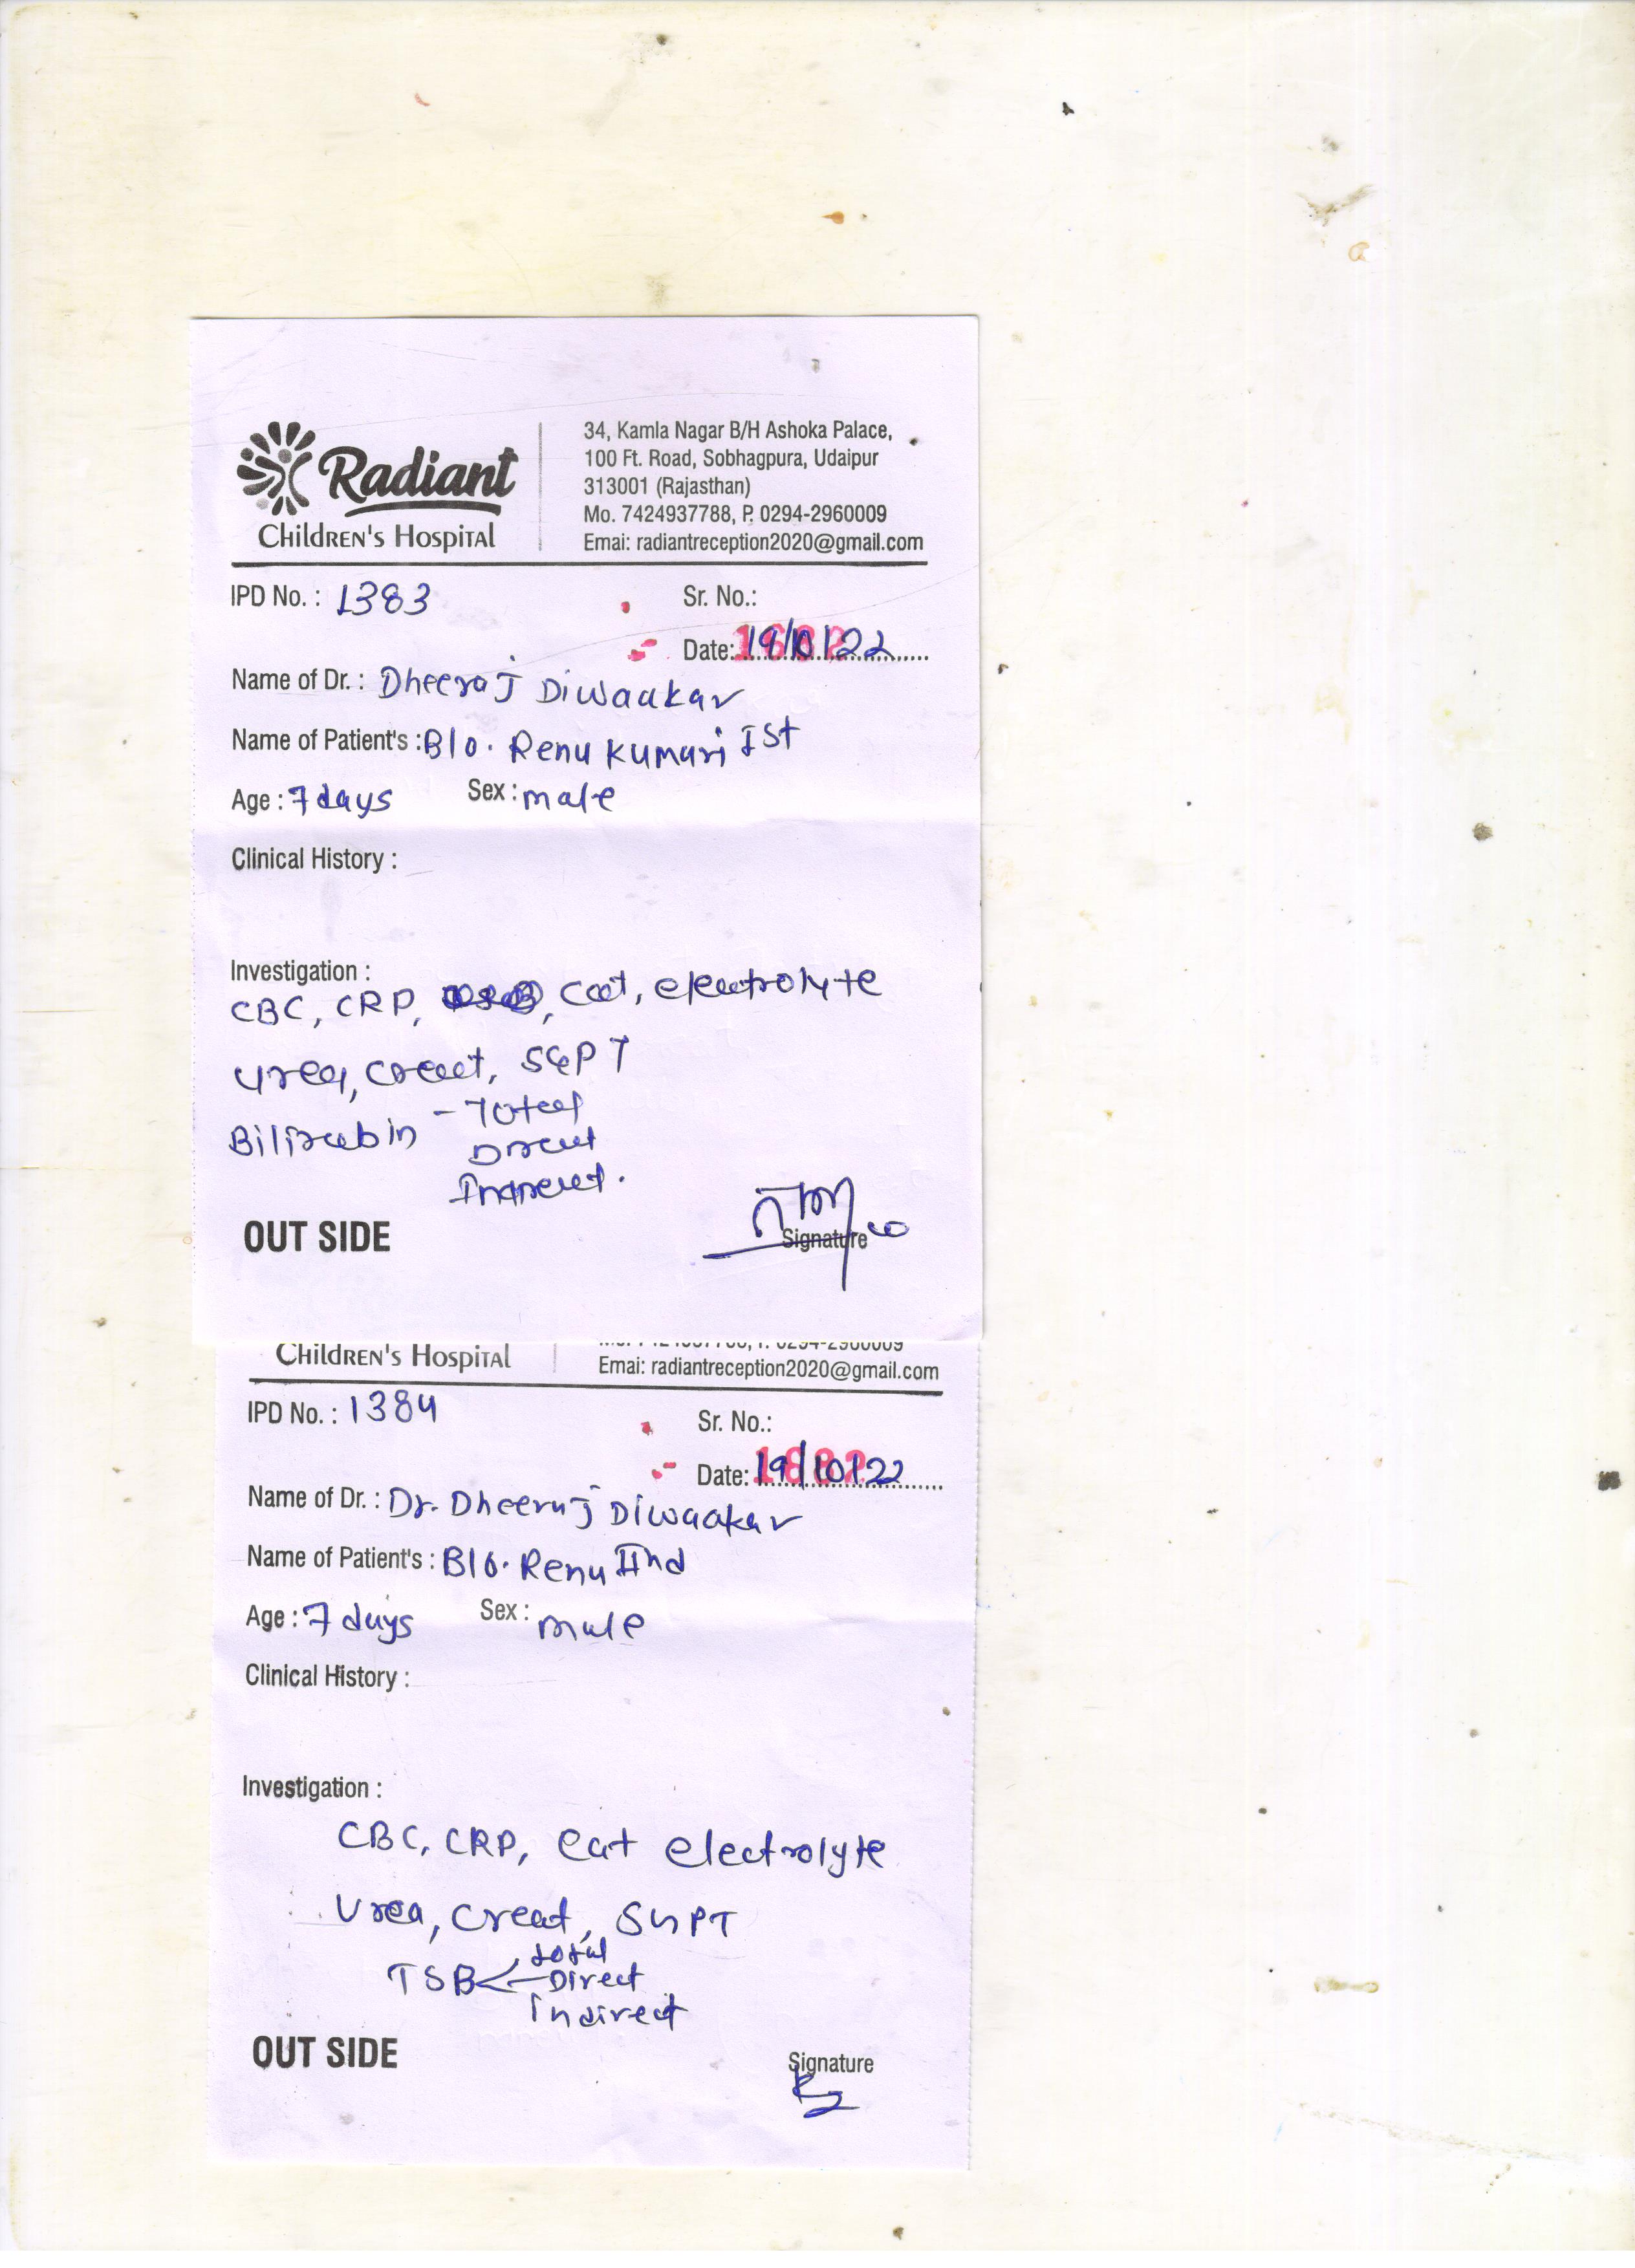 Radiant
Children's Hospital
34, Kamla Nagar B/H Ashoka Palace,
100 Ft. Road, Sobhagpura, Udaipur
313001 (Rajasthan)
Mo. 7424937788, P. 0294-2960009
Emai: radiantreception2020@gmail.com
IPD No. : 1383
Sr. No.:
Date: 19/10/22
Name of Dr. : Dheeraj Diwaakar
Name of Patient's : B/o. Renu Kumari Ist
Age : 7 days Sex : male
Clinical History :
Investigation :
CBC, CRP, Cat, electrolyte
Urea, Creat, SGPT
Bilirubin - Total
Direct
Indirect.
OUT SIDE
Signature
Children's Hospital
Emai: radiantreception2020@gmail.com
IPD No. : 1384
Sr. No.:
1882
Date: 19/10/22
Name of Dr. : Dr. Dheeraj Diwaakar
Name of Patient's : B/o. Renu IInd
Age : 7 days Sex : male
Clinical History :
Investigation :
CBC, CRP, Cat electrolyte
Urea, Creat, SGPT
TSB < total
Direct
Indirect
OUT SIDE
Signature